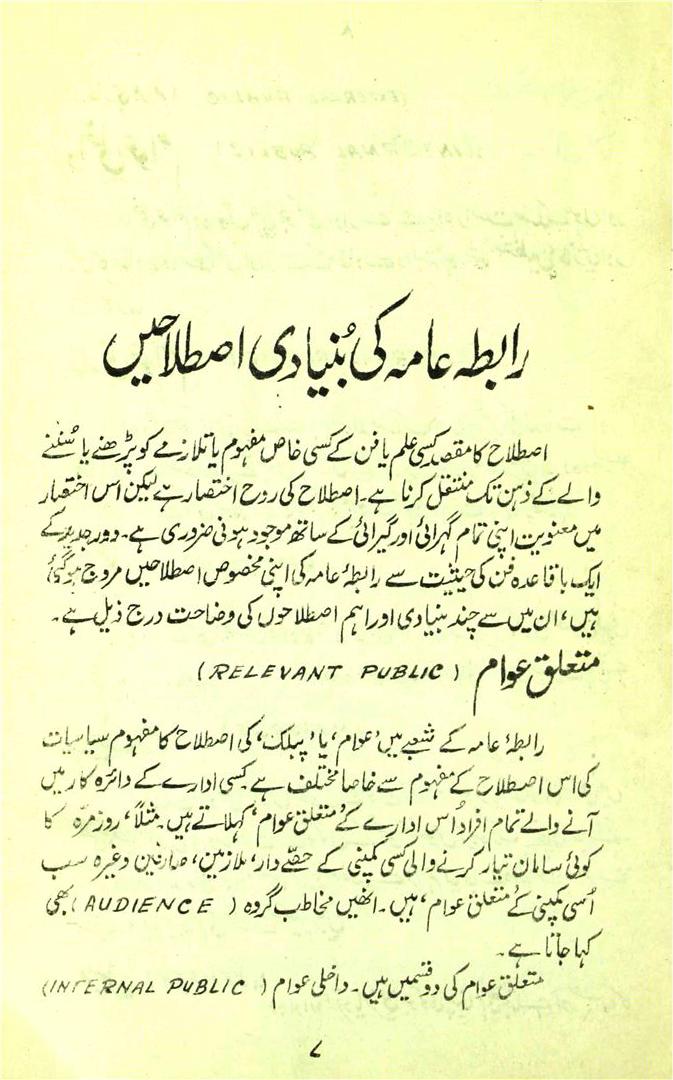 رابطہ عامہ کی بُنیادی اصطلاحیں
اصطلاح کا مقصد کسی علم یا فن کے کسی خاص مفہوم یا تلازمے کو پڑھنے یا سُننے
والے کے ذہن تک منتقل کرنا ہے۔ اصطلاح کی روح اختصار ہے لیکن اس اختصار
میں معنویت اپنی تمام گہرائی اور گیرائی کے ساتھ موجود ہونی ضروری ہے۔ دور جدید کے
ایک باقاعدہ فن کی حیثیت سے رابطۂ عامہ کی اپنی مخصوص اصطلاحیں مروج ہوگئی
ہیں، ان میں سے چند بنیادی اور اہم اصطلاحوں کی وضاحت درج ذیل ہے۔
متعلق عوام (RELEVANT PUBLIC)
رابطۂ عامہ کے شعبے میں 'عوام' یا 'پبلک' کی اصطلاح کا مفہوم سیاسیات
کی اس اصطلاح کے مفہوم سے خاصا مختلف ہے۔ کسی ادارے کے دائرہ کار میں
آنے والے تمام افراد اُس ادارے کے 'متعلق عوام' کہلاتے ہیں۔ مثلاً، روزمرّہ کا
کوئی سامان تیار کرنے والی کسی کمپنی کے حصّے دار، ملازمین، صارفین وغیرہ سب
اُسی کمپنی کے 'متعلق عوام' ہیں۔ انھیں مخاطب گروہ (AUDIENCE) بھی
کہا جاتا ہے۔
متعلق عوام کی دو قسمیں ہیں۔ داخلی عوام (INTERNAL PUBLIC)
۷